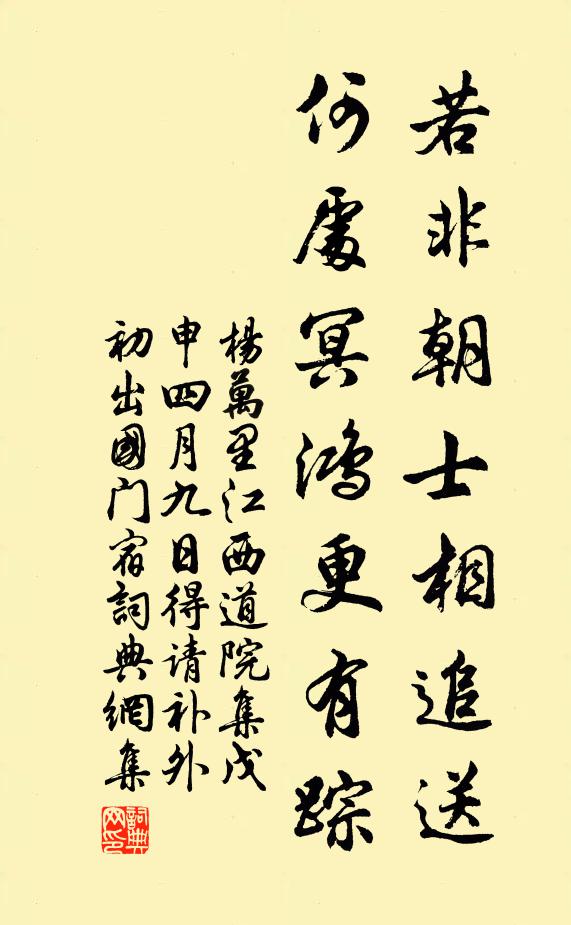 若非朝士相追送
何處冥鴻更有踪
楊萬里江西道院集戊
申四月九日得请补外
初出國门宿詞典網集
詞典
网印